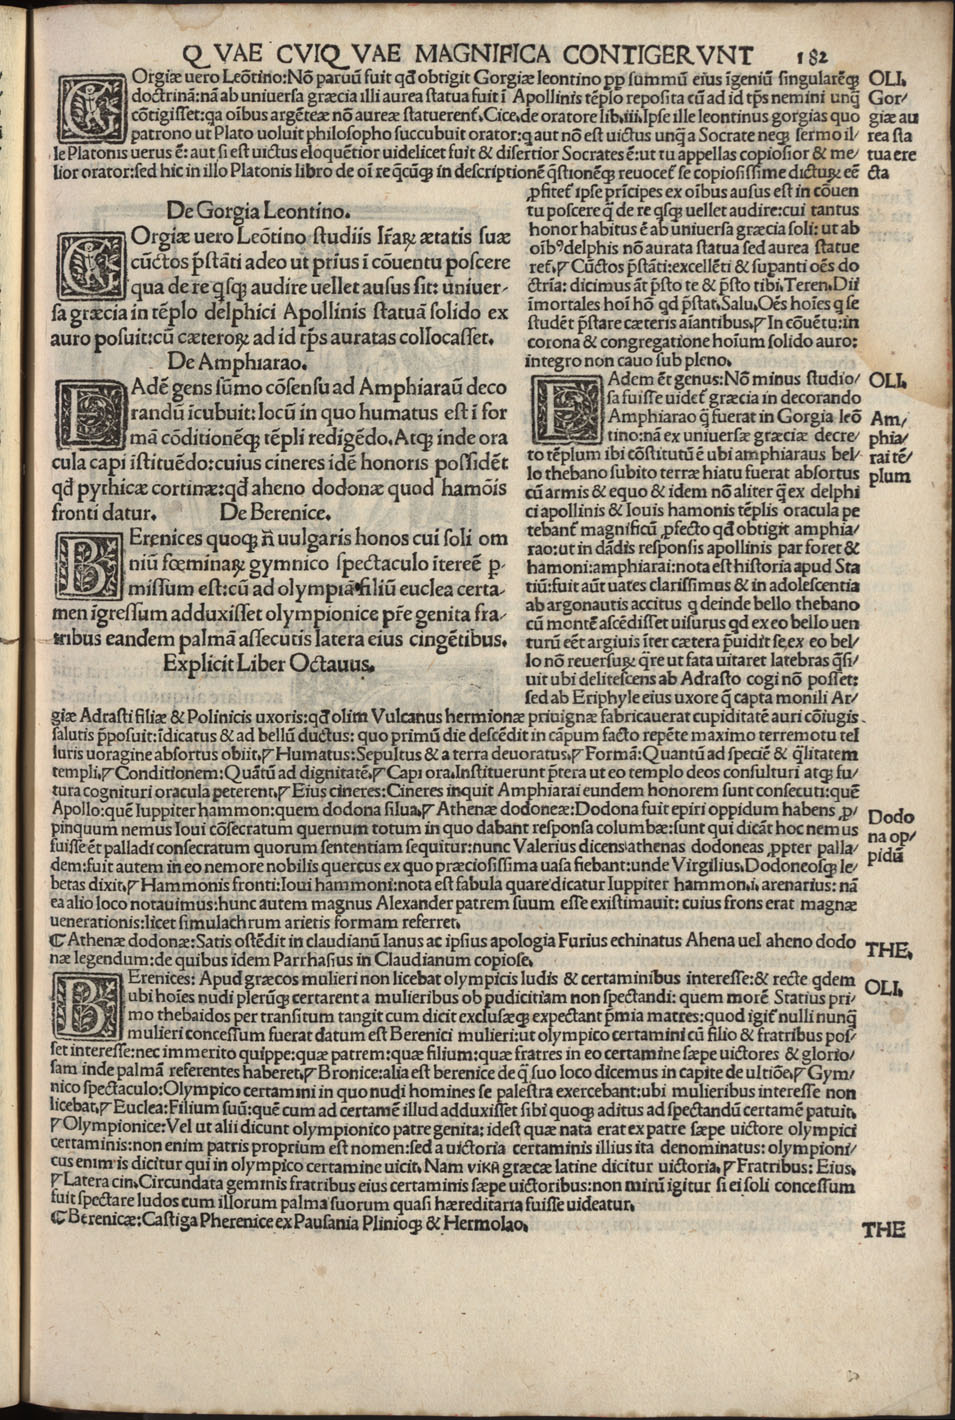 QVAE CVIQVAE MAGNIFICA CONTIGERVNT 182
GOrgiæ uero Leōtino: Nō paruū fuit qđ obtigit Gorgiæ leontino ꝓꝑ summū eius īgeniū singularēq; OLI.
doctrinā: nā ab uniuersa græcia illi aurea statua fuit ī Apollinis tēplo reposita cū ad id tp̄s nemini unq̄ Gor/
cōtigisset: qa oībus argēteæ nō aureæ statuerent̃. Cice. de oratore lib. iii. Ipse ille leontinus gorgias quo giæ au
patrono ut Plato uoluit philosopho succubuit orator: q aut nō est uictus unq̄ a Socrate neq; sermo il/ rea sta
le Platonis uerus ē: aut si est uictus eloquētior uidelicet fuit & disertior Socrates ē: ut tu appellas copiosior & me/ tua ere
lior orator: sed hic in illo Platonis libro de oī re q̄cūq; in descriptionē q̄stionēq; reuocet̃ se copiosissime dicturꝝ eē cta
De Gorgia Leontino.
GOrgiæ uero Leōtino studiis lr̄aꝝ ætatis suæ
cūctos p̄stāti adeo ut prius ī cōuentu poscere
qua de re qsq; audire uellet ausus sit: uniuer-
sa græcia in tēplo delphici Apollinis statuā solido ex
auro posuit: cū cæteroꝝ ad id tp̄s auratas collocasset.
De Amphiarao.
EAdē gens sūmo cōsensu ad Amphiaraū deco
randū īcubuit: locū in quo humatus est ī for
mā cōditionēq; tēpli redigēdo. Atq; inde ora
cula capi īstituēdo: cuius cineres idē honoris possidēt
qđ pythicæ cortinæ: qđ aheno dodonæ quod hamōis
fronti datur. De Berenice.
BErenices quoq; n̄ uulgaris honos cui soli om
niū fœminaꝝ gymnico spectaculo īteree ꝑ-
missum est: cū ad olympiā filiū euclea certa-
men īgressum adduxisset olympionice pr̄e genita fra-
tribus eandem palmā assecutis latera eius cingētibus.
Explicit Liber Octauus.
ꝓfitet̃ ipse prīcipes ex oībus ausus est in cōuen
tu poscere q̄ de re qsq; uellet audire: cui tantus
honor habitus ē ab uniuersa græcia soli: ut ab
oīb⁹ delphis nō aurata statua sed aurea statue
ret̃. ⁊ Cūctos p̄stāti: excellēti & supanti oēs do
ctrīa: dicimus āt p̄sto te & p̄sto tibi. Teren. Dii
īmortales hoī hō qd p̄stat. Salu. Oēs hoīes q se
studēt p̄stare cæteris aīantibus. ⁊ In cōuētu: in
corona & congregatione hoīum solido auro:
integro non cauo sub pleno.
EAdem ēt genus: Nō minus studio/ OLI.
sa fuisse uidet̃ græcia in decorando
Amphiarao q̄ fuerat in Gorgia leō Am/
tino: nā ex uniuersæ græciæ decre/ phia/
to tēplum ibi cōstitutū ē ubi amphiaraus bel- rai tē/
lo thebano subito terræ hiatu fuerat absortus plum
cū armis & equo & idem nō aliter q̄ ex delphi
ci apollinis & Iouis hamonis tēplis oracula pe
tebant̃ magnificū ꝓfecto qđ obtigit amphia/
rao: ut in dādis responsis apollinis par foret &
hamoni: amphiarai: nota est historia apud Sta
tiū: fuit aūt uates clarissimus & in adolescentia
ab argonautis accitus q deinde bello thebano
cū montē ascēdisset uisurus qd ex eo bello uen
turū eēt argiuis īter cætera p̄uidit se ex eo bel/
lo nō reuersurꝝ q̄re ut fata uitaret latebras q̄si/
uit ubi delitescens ab Adrasto cogi nō posset:
sed ab Eriphyle eius uxore q̄ capta monili Ar/
giæ Adrasti filiæ & Polinicis uxoris: qđ olim Vulcanus hermionæ priuignæ fabricauerat cupiditatē auri cōiugis
salutis p̄posuit: īdicatus & ad bellū ductus: quo primū die descēdit in cāpum facto repēte maximo terremotu tel
luris uoragine absortus obiit. ⁊ Humatus: Sepultus & a terra deuoratus. ⁊ Formā: Quantū ad speciē & q̄litatem
templi. ⁊ Conditionem: Quātū ad dignitatē. ⁊ Capi ora. Instituerunt p̄tera ut eo templo deos consulturi atq; fu/
tura cognituri oracula peterent. ⁊ Eius cineres: Cineres inquit Amphiarai eundem honorem sunt consecuti: quē
Apollo: quē Iuppiter hammon: quem dodona silua. ⁊ Athenæ dodoneæ: Dodona fuit epiri oppidum habens ꝓ/ Dodo
pinquum nemus Ioui cōsecratum quernum totum in quo dabant responsa columbæ: sunt qui dicāt hoc nemus na op/
fuisse ēt palladi consecratum quorum sententiam sequitur: nunc Valerius dicens athenas dodoneas ꝓpter palla/ pidū
dem: fuit autem in eo nemore nobilis quercus ex quo præciosissima uasa fiebant: unde Virgilius. Dodoneosq; le/
betas dixit. ⁊ Hammonis fronti: Ioui hammoni: nota est fabula quare dicatur Iuppiter hammon. i. arenarius: nā
ea alio loco notauimus: hunc autem magnus Alexander patrem suum esse existimauit: cuius frons erat magnæ
uenerationis: licet simulachrum arietis formam referret.
¶ Athenæ dodonæ: Satis ostēdit in claudianū Ianus ac ipsius apologia Furius echinatus Ahena uel aheno dodo THE.
næ legendum: de quibus idem Parrhasius in Claudianum copiose.
BErenices: Apud græcos mulieri non licebat olympicis ludis & certaminibus interesse: & recte qdem OLI.
ubi hoīes nudi plerūq; certarent a mulieribus ob pudicitiam non spectandi: quem morē Statius pri/
mo thebaidos per transitum tangit cum dicit exclusæq; expectant p̄mia matres: quod igit̃ nulli nunq̄
mulieri concessum fuerat datum est Berenici mulieri: ut olympico certamini cū filio & fratribus pos/
set interesse: nec immerito quippe: quæ patrem: quæ filium: quæ fratres in eo certamine sæpe uictores & glorio/
sam inde palmā referentes haberet. ⁊ Bronice: alia est berenice de q̄ suo loco dicemus in capite de ultiōe. ⁊ Gym/
nico spectaculo: Olympico certamini in quo nudi homines se palestra exercebant: ubi mulieribus interesse non
licebat. ⁊ Euclea: Filium suū: quē cum ad certamē illud adduxisset sibi quoq; aditus ad spectandū certamē patuit.
⁊ Olympionice: Vel ut alii dicunt olympionico patre genita: idest quæ nata erat ex patre sæpe uictore olympici
certaminis: non enim patris proprium est nomen: sed a uictoria certaminis illius ita denominatus: olympioni/
cus enim is dicitur qui in olympico certamine uicit. Nam νίκη græcæ latine dicitur uictoria. ⁊ Fratribus: Eius.
⁊ Latera cin. Circundata geminis fratribus eius certaminis sæpe uictoribus: non mirū igitur si ei soli concessum
fuit spectare ludos cum illorum palma suorum quasi hæreditaria fuisse uideatur.
¶ Berenicæ: Castiga Pherenice ex Pausania Plinioq; & Hermolao. THE